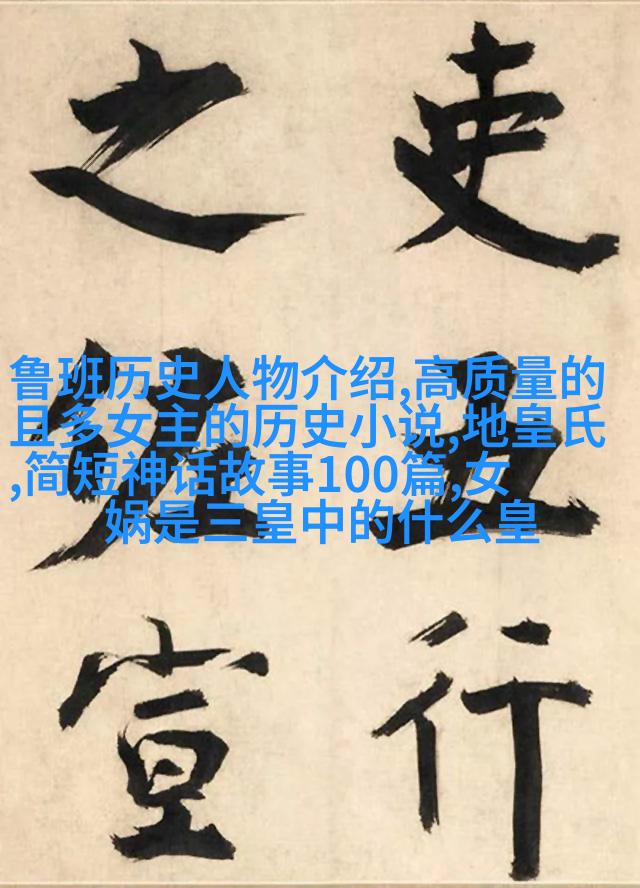 吏行
之宣
鲁班历史人物介绍,高质量的
且多女主的历史小说,地皇氏
,简短神话故事100篇,女
娲是三皇中的什么皇